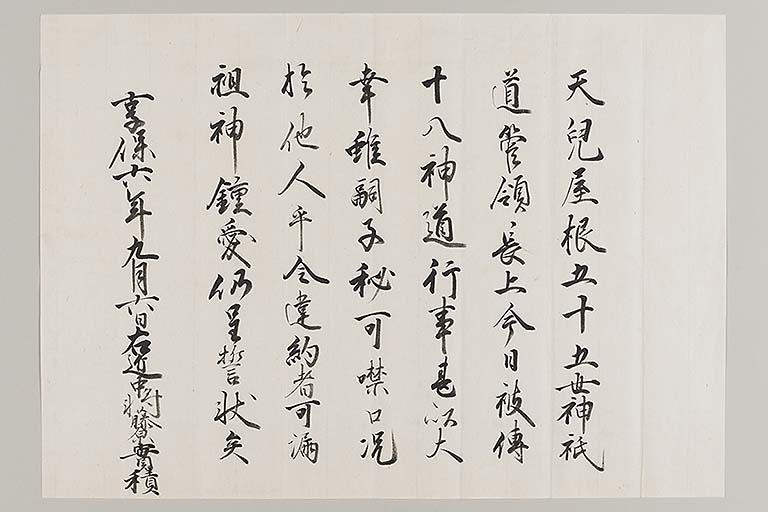 天兒屋根五十五世神祇
道管領長上今日被傳
十八神道行事甚以大
幸雖嗣子秘可噤口况
於他人乎令違約者可漏
祖神鍾愛仍呈誓狀矣
享保六年九月六日右近中將藤實積